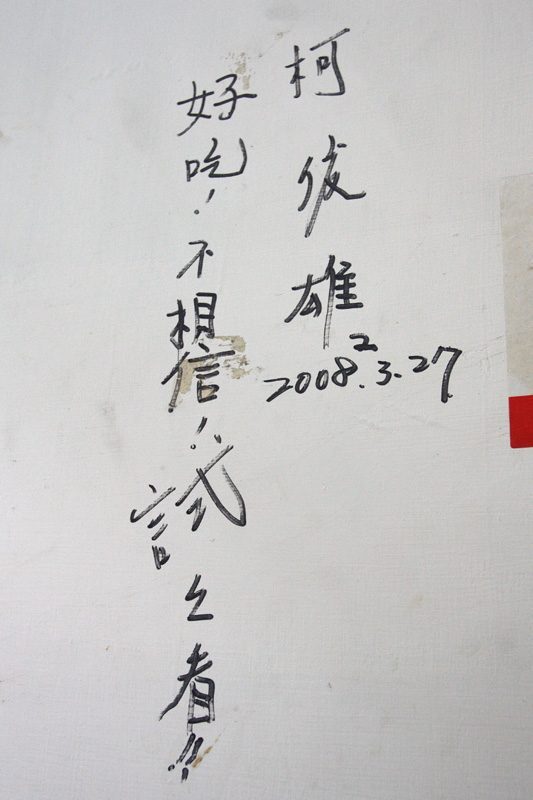 柯俊雄
2
2008.3.27
好吃!不相信!試々看!!